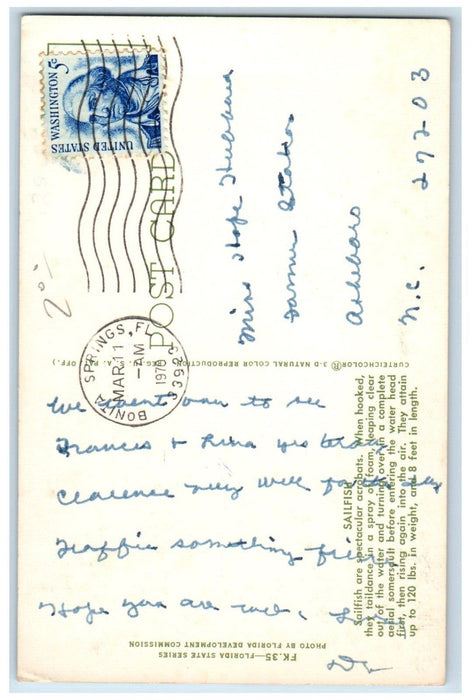 WASHINGTON 5c
UNITED STATES
POST CARD
BONITA SPRINGS, FL
MAR 11
AM
1970
33923
20-
Miss Hope Hubbard
Farmer Station
Asheboro
N.C. 27203
CURTEICHCOLOR® 3-D NATURAL COLOR REPRODUCTION
We went over to see
Frances & Rena yesterday
Clarence very well
Traffic something
Hope you are well,
SAILFISH
Sailfish are spectacular acrobats. When hooked,
they taildance in a spray of foam, leaping clear
out of the water and turning over in a complete
aerial somersault before entering the water head
first, then rising again into the air. They attain
up to 120 lbs. in weight, and 8 feet in length.
FK.35—FLORIDA STATE SERIES
PHOTO BY FLORIDA DEVELOPMENT COMMISSION